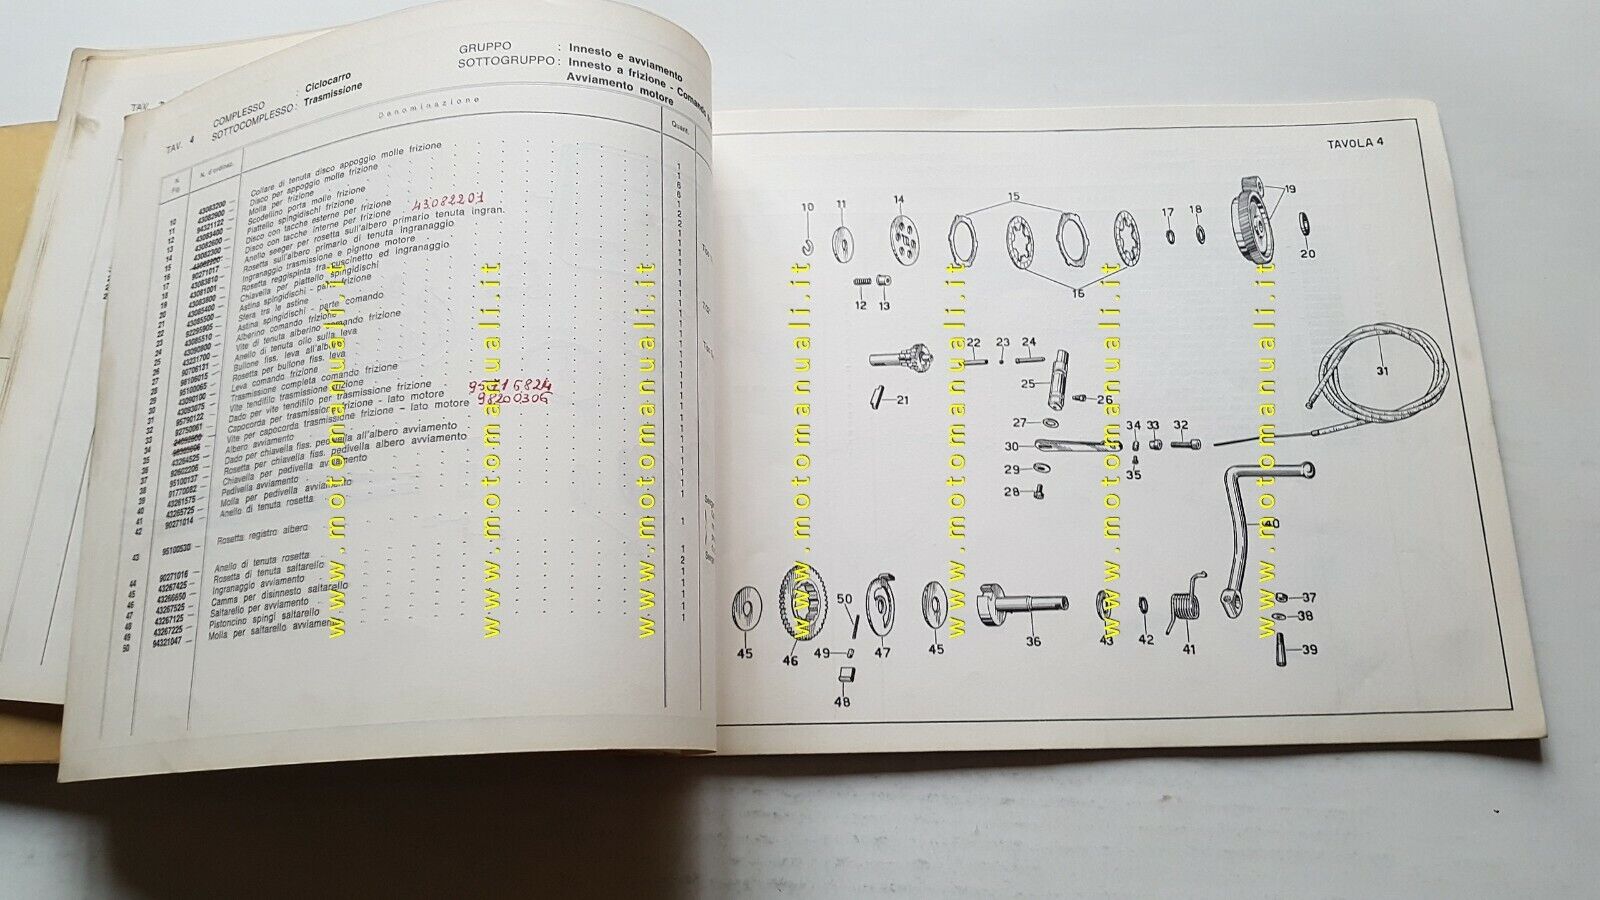 TAV. 4
COMPLESSO : Ciclocarro
SOTTOCOMPLESSO : Trasmissione
GRUPPO : Innesto e avviamento
SOTTOGRUPPO : Innesto a frizione - Comando
Avviamento motore
N. Fig.
N. d'ordinaz.
Denominazione
Quant.
10 43083200 — Collare di tenuta disco appoggio molle frizione
11 43082900 — Disco per appoggio molle frizione
12 94321122 — Molla per frizione
13 43083400 — Scodellino porta molle frizione
14 43082600 — Piattello spingidischi frizione
15 43082300 — Disco con tacche esterne per frizione
16 Disco con tacche interne per frizione 43082201
17 90271017 — Anello seeger per rosetta sull'albero primario tenuta ingran.
18 43083810 — Rosetta sull'albero primario di tenuta ingranaggio
19 43081001 — Ingranaggio trasmissione e pignone motore
20 43083800 — Rosetta reggispinta tra cuscinetto ed ingranaggio
21 43085400 — Chiavella per piattello spingidischi
22 43085500 — Astina spingidischi - parte frizione
23 92295905 — Sfera tra le astine
24 43085510 — Astina spingidischi - parte comando
25 43090900 — Alberino comando frizione
26 43231700 — Vite di tenuta alberino comando frizione
27 90706131 — Anello di tenuta olio sulla leva
28 98106015 — Bullone fiss. leva all'alberino
29 95100065 — Rosetta per bullone fiss. leva
30 43090100 — Leva comando frizione
31 43093075 — Trasmissione completa comando frizione
32 95790122 — Vite tendifilo trasmissione frizione
33 92750061 — Dado per vite tendifilo per trasmissione frizione
34 Capocorda per trasmissione frizione - lato motore 95716824
35 Vite per capocorda trasmissione frizione - lato motore 98200306
36 43264525 — Albero avviamento
37 92602206 — Dado per chiavella fiss. pedivella all'albero avviamento
38 95100137 — Rosetta per chiavella fiss. pedivella albero avviamento
39 91770082 — Chiavella per pedivella avviamento
40 43261575 — Pedivella avviamento
41 43265725 — Molla per pedivella avviamento
42 90271014 — Anello di tenuta rosetta
43 95100530 — Rosetta registro albero
44 90271016 — Anello di tenuta rosetta
45 43267425 — Rosetta di tenuta saltarello
46 43266650 — Ingranaggio avviamento
47 43267525 — Camma per disinnesto saltarello
48 43267125 — Saltarello per avviamento
49 43267225 — Pistoncino spingi saltarello
50 94321047 — Molla per saltarello avviamento
TAVOLA 4
10 11 14 15 17 18 19 20
12 13 16
22 23 24 25 26 21 31
27 30 34 33 32 35
29 28 40
50 37 38 39
45 46 49 47 45 36 43 42 41
48
www.motomanuali.it
www.motomanuali.it
www.motomanuali.it
www.motomanuali.it
www.motomanuali.it
www.motomanuali.it
www.motomanuali.it